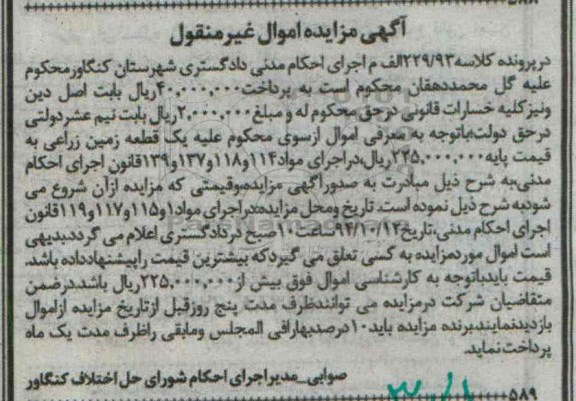 آگهی مزایده اموال غیر منقول
در پرونده کلاسه ۲۲۹/۹۳الف م اجرای احکام مدنی دادگستری شهرستان کنگاور محکوم
علیه گل محمد دهقان محکوم است به پرداخت ۴۰,۰۰۰,۰۰۰ ریال بابت اصل دین
ونیز کلیه خسارات قانونی در حق محکوم له و مبلغ ۲,۰۰۰,۰۰۰ ریال بابت نیم عشر دولتی
در حق دولت،باتوجه به معرفی اموال ازسوی محکوم علیه یک قطعه زمین زراعی به
قیمت پایه ۲۴۵,۰۰۰,۰۰۰ ریال،دراجرای مواد۱۱۴و۱۱۸و۱۳۷و۱۳۹قانون اجرای احکام
مدنی،به شرح ذیل مبادرت به صدور آگهی مزایده،وقیمتی که مزایده ازآن شروع می
شود،به شرح ذیل نموده است. تاریخ ومحل مزایده:دراجرای مواد۱و۱۱۵و۱۱۷و۱۱۹قانون
اجرای احکام مدنی،تاریخ۹۴/۱۰/۱۳ساعت۱۰صبح دردادگستری اعلام می گردد.بدیهی
است اموال موردمزایده به کسی تعلق می گیردکه بیشترین قیمت راپیشنهادداده باشد.
قیمت بایدباتوجه به کارشناسی اموال فوق بیش از۲۲۵,۰۰۰,۰۰۰ریال باشد.درضمن
متقاضیان شرکت درمزایده می توانندظرف مدت پنج روزقبل ازتاریخ مزایده ازاموال
بازدیدنمایند.برنده مزایده باید۱۰درصدبهارافی المجلس ومابقی راظرف مدت یک ماه
پرداخت نماید.
صوابی_مدیراجرای احکام شورای حل اختلاف کنگاور
۵۸۹